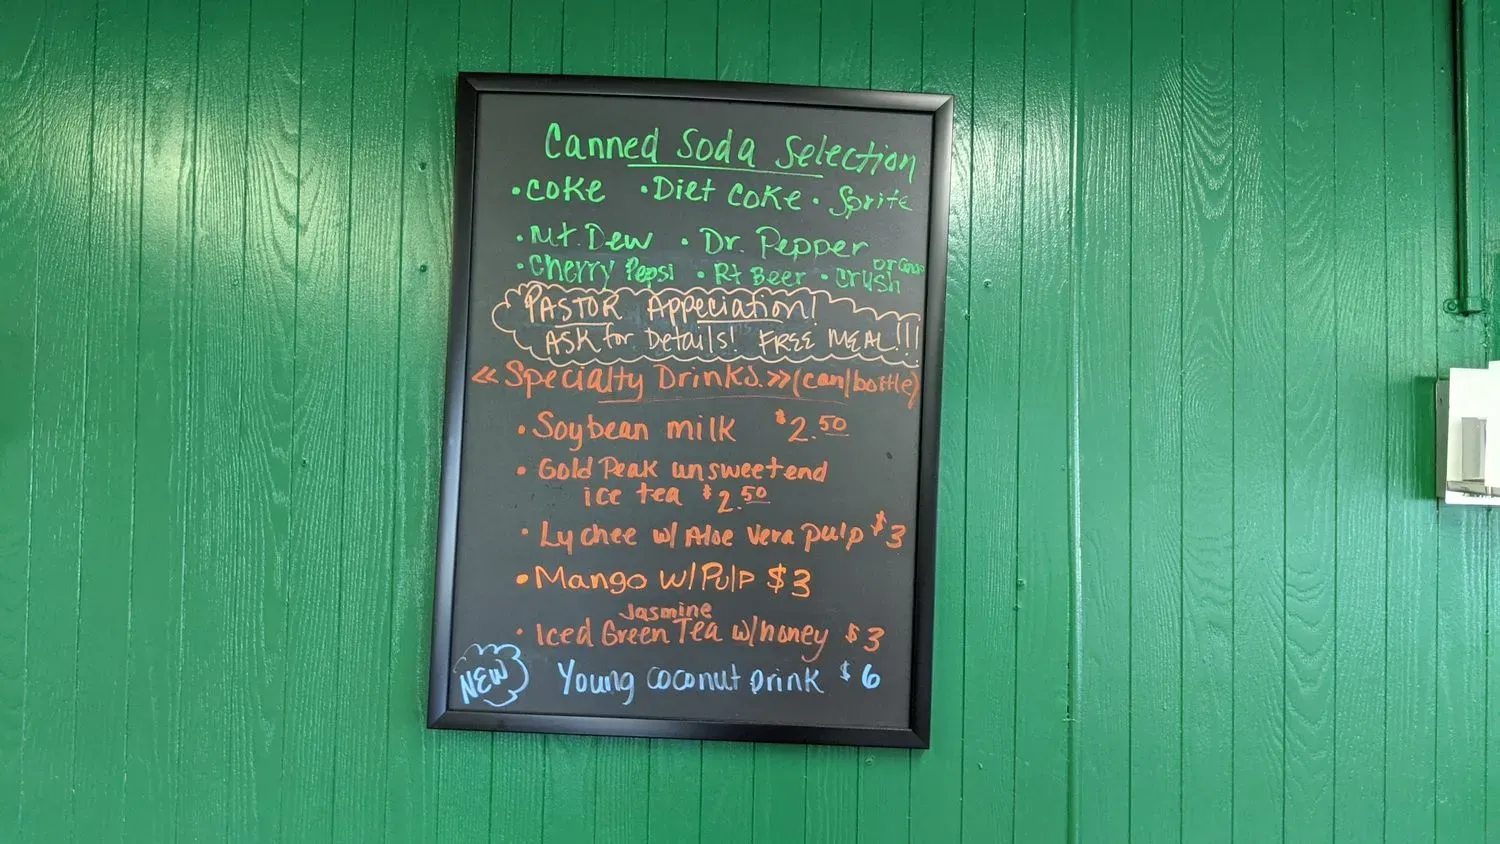 Canned Soda Selection
• Coke • Diet Coke • Sprite
• Mt. Dew • Dr. Pepper
• Cherry Pepsi • Rt Beer • Orange Crush
PASTOR Appeciation!
ASK for Details! FREE MEAL!!!
« Specialty Drinks. » (can/bottle)
• Soybean milk $2.50
• Gold Peak unsweetend
ice tea $2.50
• Lychee w/ Aloe Vera pulp $3
• Mango w/ Pulp $3
Jasmine
• Iced Green Tea w/honey $3
NEW Young coconut Drink $6